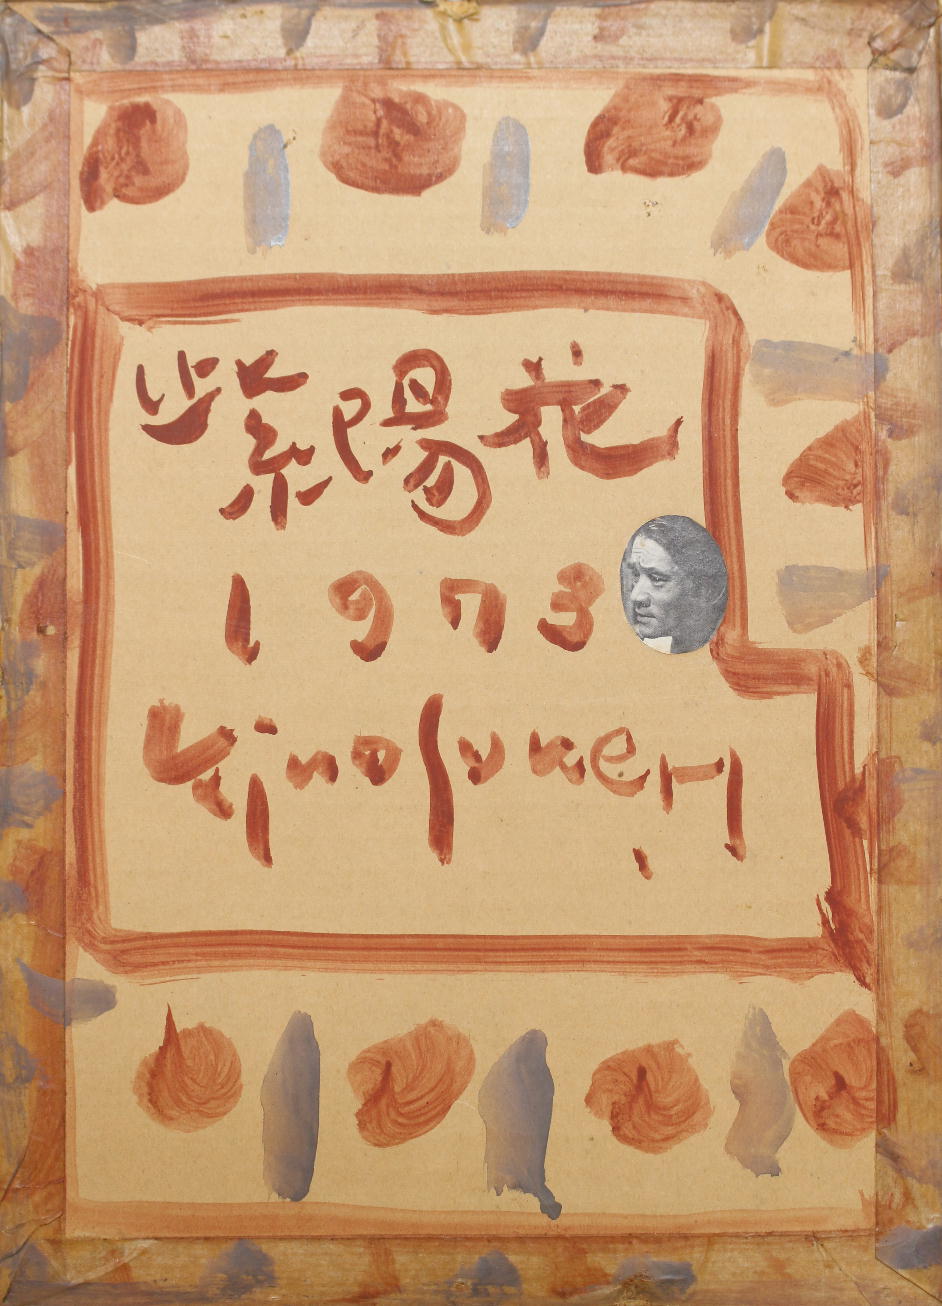 紫陽花
1973
Kinosuke. H